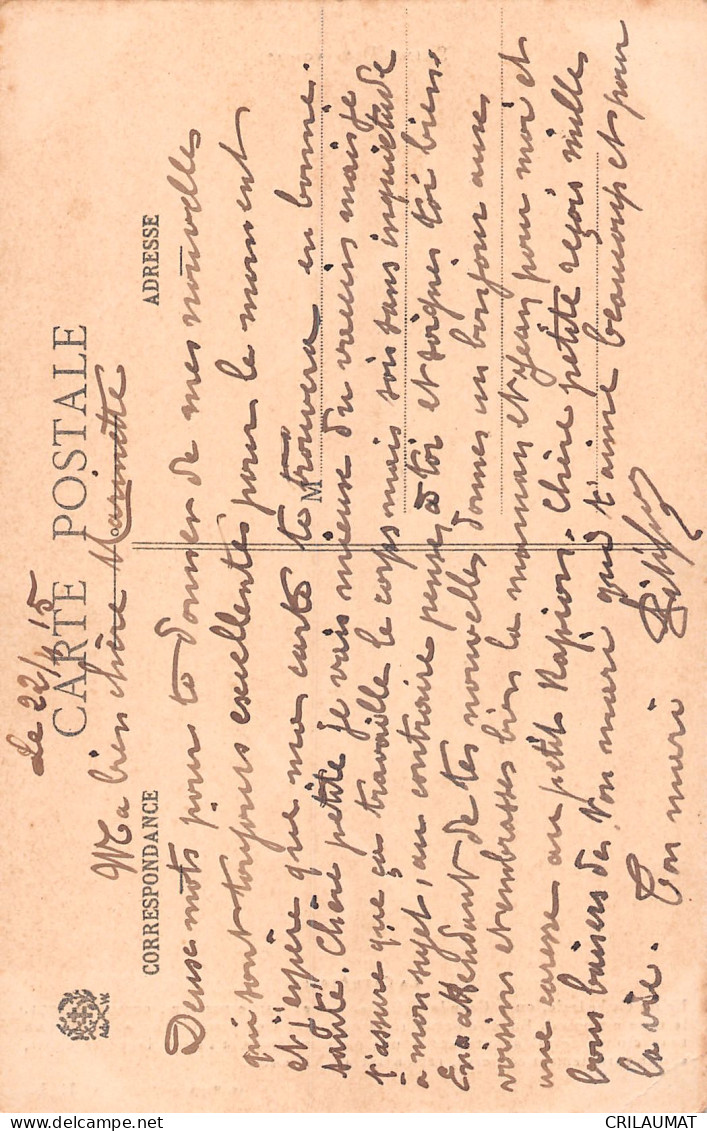 le 22/4/15
CARTE POSTALE
Ma bien chère Marinette
CORRESPONDANCE
ADRESSE
M
Deux mots pour te donner de mes nouvelles
qui sont toujours excellentes pour le moment
et j'espère que ma carte te trouvera en bonne.
santé. Chère petite je vais mieux du vaccin mais je
t'assure que ça travaille le corps mais sois sans inquiétude
a mon sujet, au contraire penses à toi et soignes toi bien.
En attendant de tes nouvelles donnes un bonjour aux
voisins et embrasses bien la maman et Jean pour moi et
une caresse au petit Chère petite reçois mille
bons baisers de ton mari que t'aime beaucoup et pour
la vie. Ton mari
A.W.
CRILAUMAT